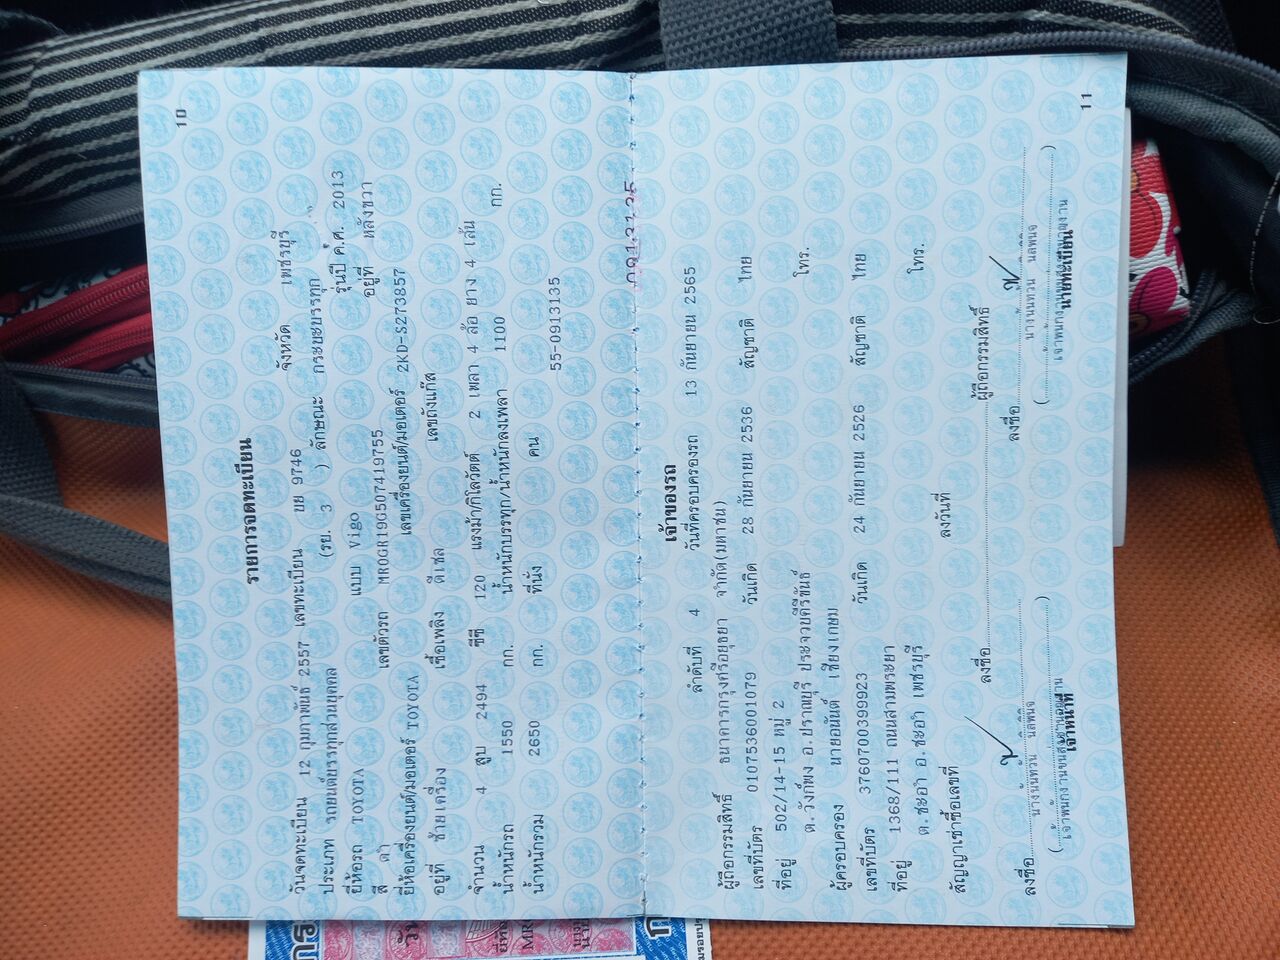 10
รายการจดทะเบียน
วันจดทะเบียน 12 กุมภาพันธ์ 2557 เลขทะเบียน ยย 9746 จังหวัด เพชรบุรี
ประเภท รถยนต์บรรทุกส่วนบุคคล (รย. 3 ) ลักษณะ กระบะบรรทุก
ยี่ห้อรถ TOYOTA แบบ Vigo รุ่นปี ค.ศ. 2013
สี ดำ เลขตัวรถ MR0GR19G507419755 อยู่ที่ หลังขวา
ยี่ห้อเครื่องยนต์/มอเตอร์ TOYOTA เลขเครื่องยนต์/มอเตอร์ 2KD-S273857
อยู่ที่ ซ้ายเครื่อง เชื้อเพลิง ดีเซล เลขถังแก๊ส
จำนวน 4 สูบ 2494 ซีซี 120 แรงม้า/กิโลวัตต์ 2 เพลา 4 ล้อ ยาง 4 เส้น
น้ำหนักรถ 1550 กก. น้ำหนักบรรทุก/น้ำหนักลงเพลา 1100 กก.
น้ำหนักรวม 2650 กก. ที่นั่ง คน
55-0913135
11
เจ้าของรถ
ลำดับที่ 4 วันที่ครอบครองรถ 13 กันยายน 2565
ผู้ถือกรรมสิทธิ์ ธนาคารกรุงศรีอยุธยา จำกัด(มหาชน)
เลขที่บัตร 0107536001079 วันเกิด 28 กันยายน 2536 สัญชาติ ไทย
ที่อยู่ 502/14-15 หมู่ 2
ต.วังก์พง อ.ปราณบุรี ประจวบคีรีขันธ์ โทร.
ผู้ครอบครอง นายอนันต์ เชียงเกษม
เลขที่บัตร 3760700399923 วันเกิด 24 กันยายน 2526 สัญชาติ ไทย
ที่อยู่ 1368/111 ถนนสามพระยา
ต.ชะอำ อ.ชะอำ เพชรบุรี โทร.
สัญญาเช่าซื้อเลขที่ ลงวันที่
ลงชื่อ ผู้ถือกรรมสิทธิ์
ลงชื่อ ลงชื่อ
เจ้าหน้าที่ นายทะเบียน